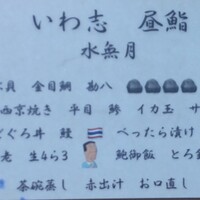 いわ志 昼鮨
水無月
貝 金目鯛 勘八
西京焼き 平目 鯵 イカ玉 サ
ぐろ丼 鰹 べったら漬け
老 生4ら3 鮑御飯 とろ
茶碗蒸し 赤出汁 お口直し